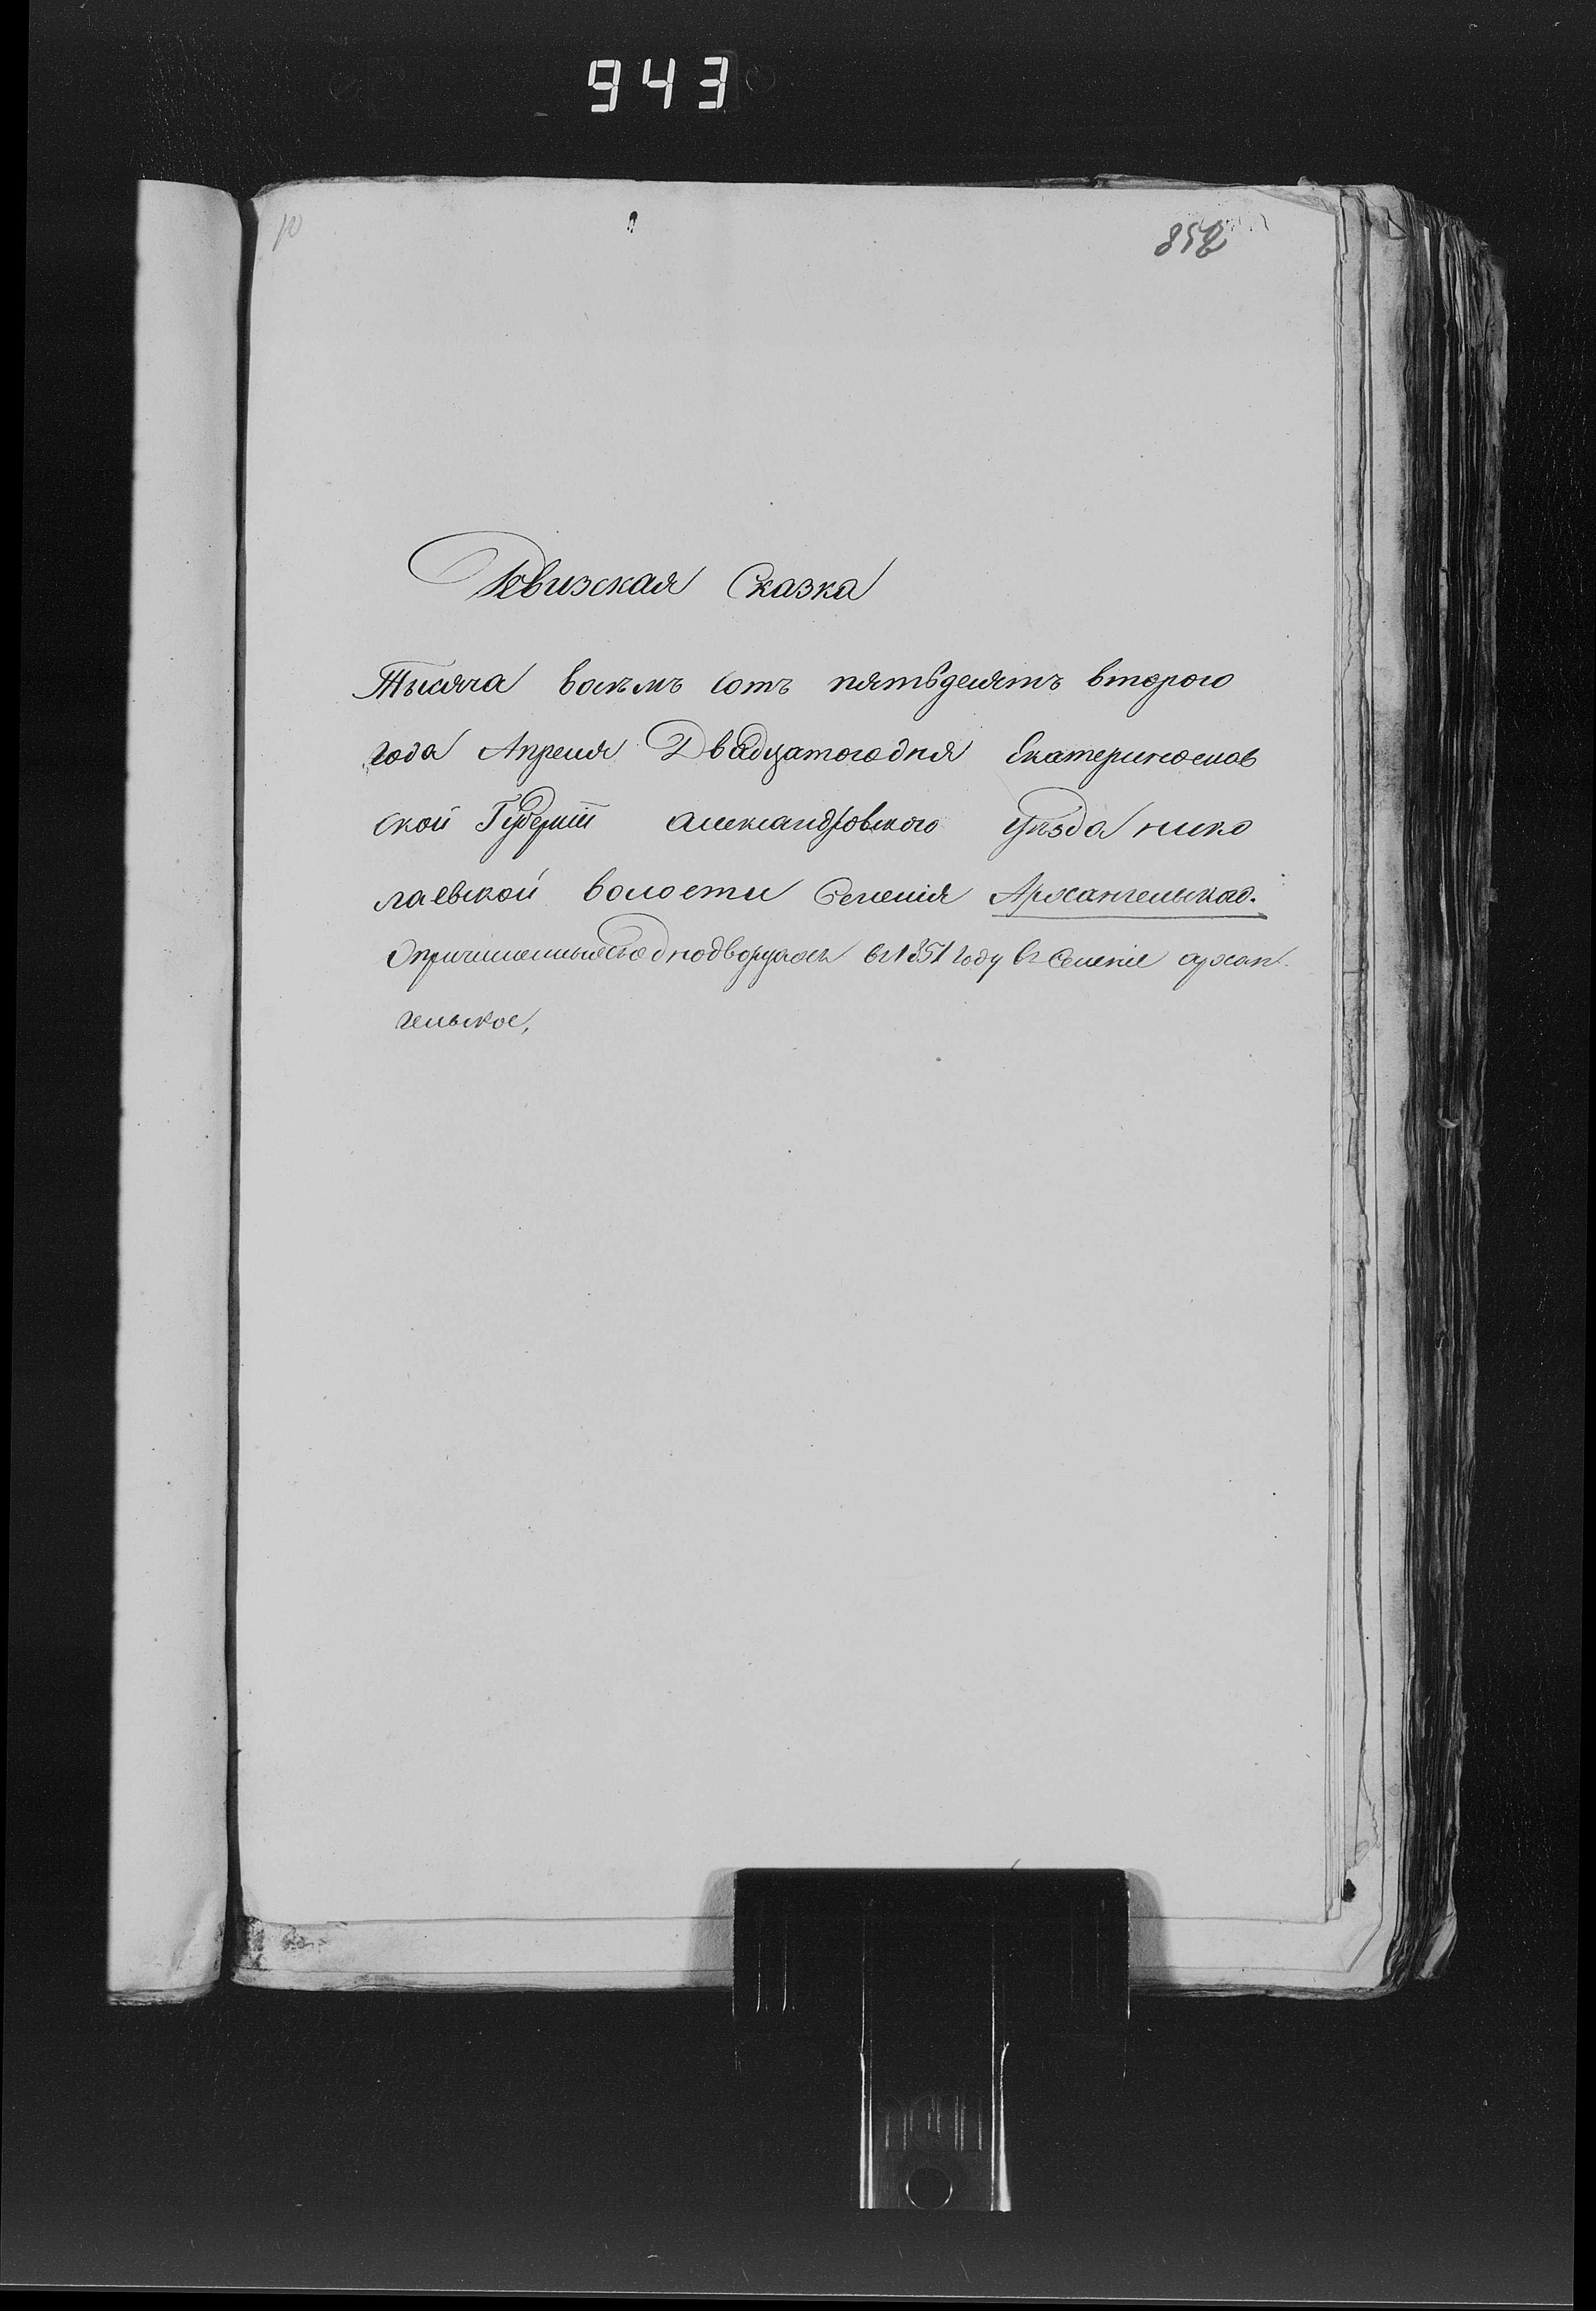 943
10
852
Ревизская Сказка
Тысяча восемъ сотъ пятьдесятъ второго
года Апреля Двадцатого дня Екатеринослав
ской Губерніи александровского уезда нико
лаевской волости Селенія Архангельскаго.
О причисленныхъ однодворцахъ въ 1851 году въ Селеніе архан-
гельское,